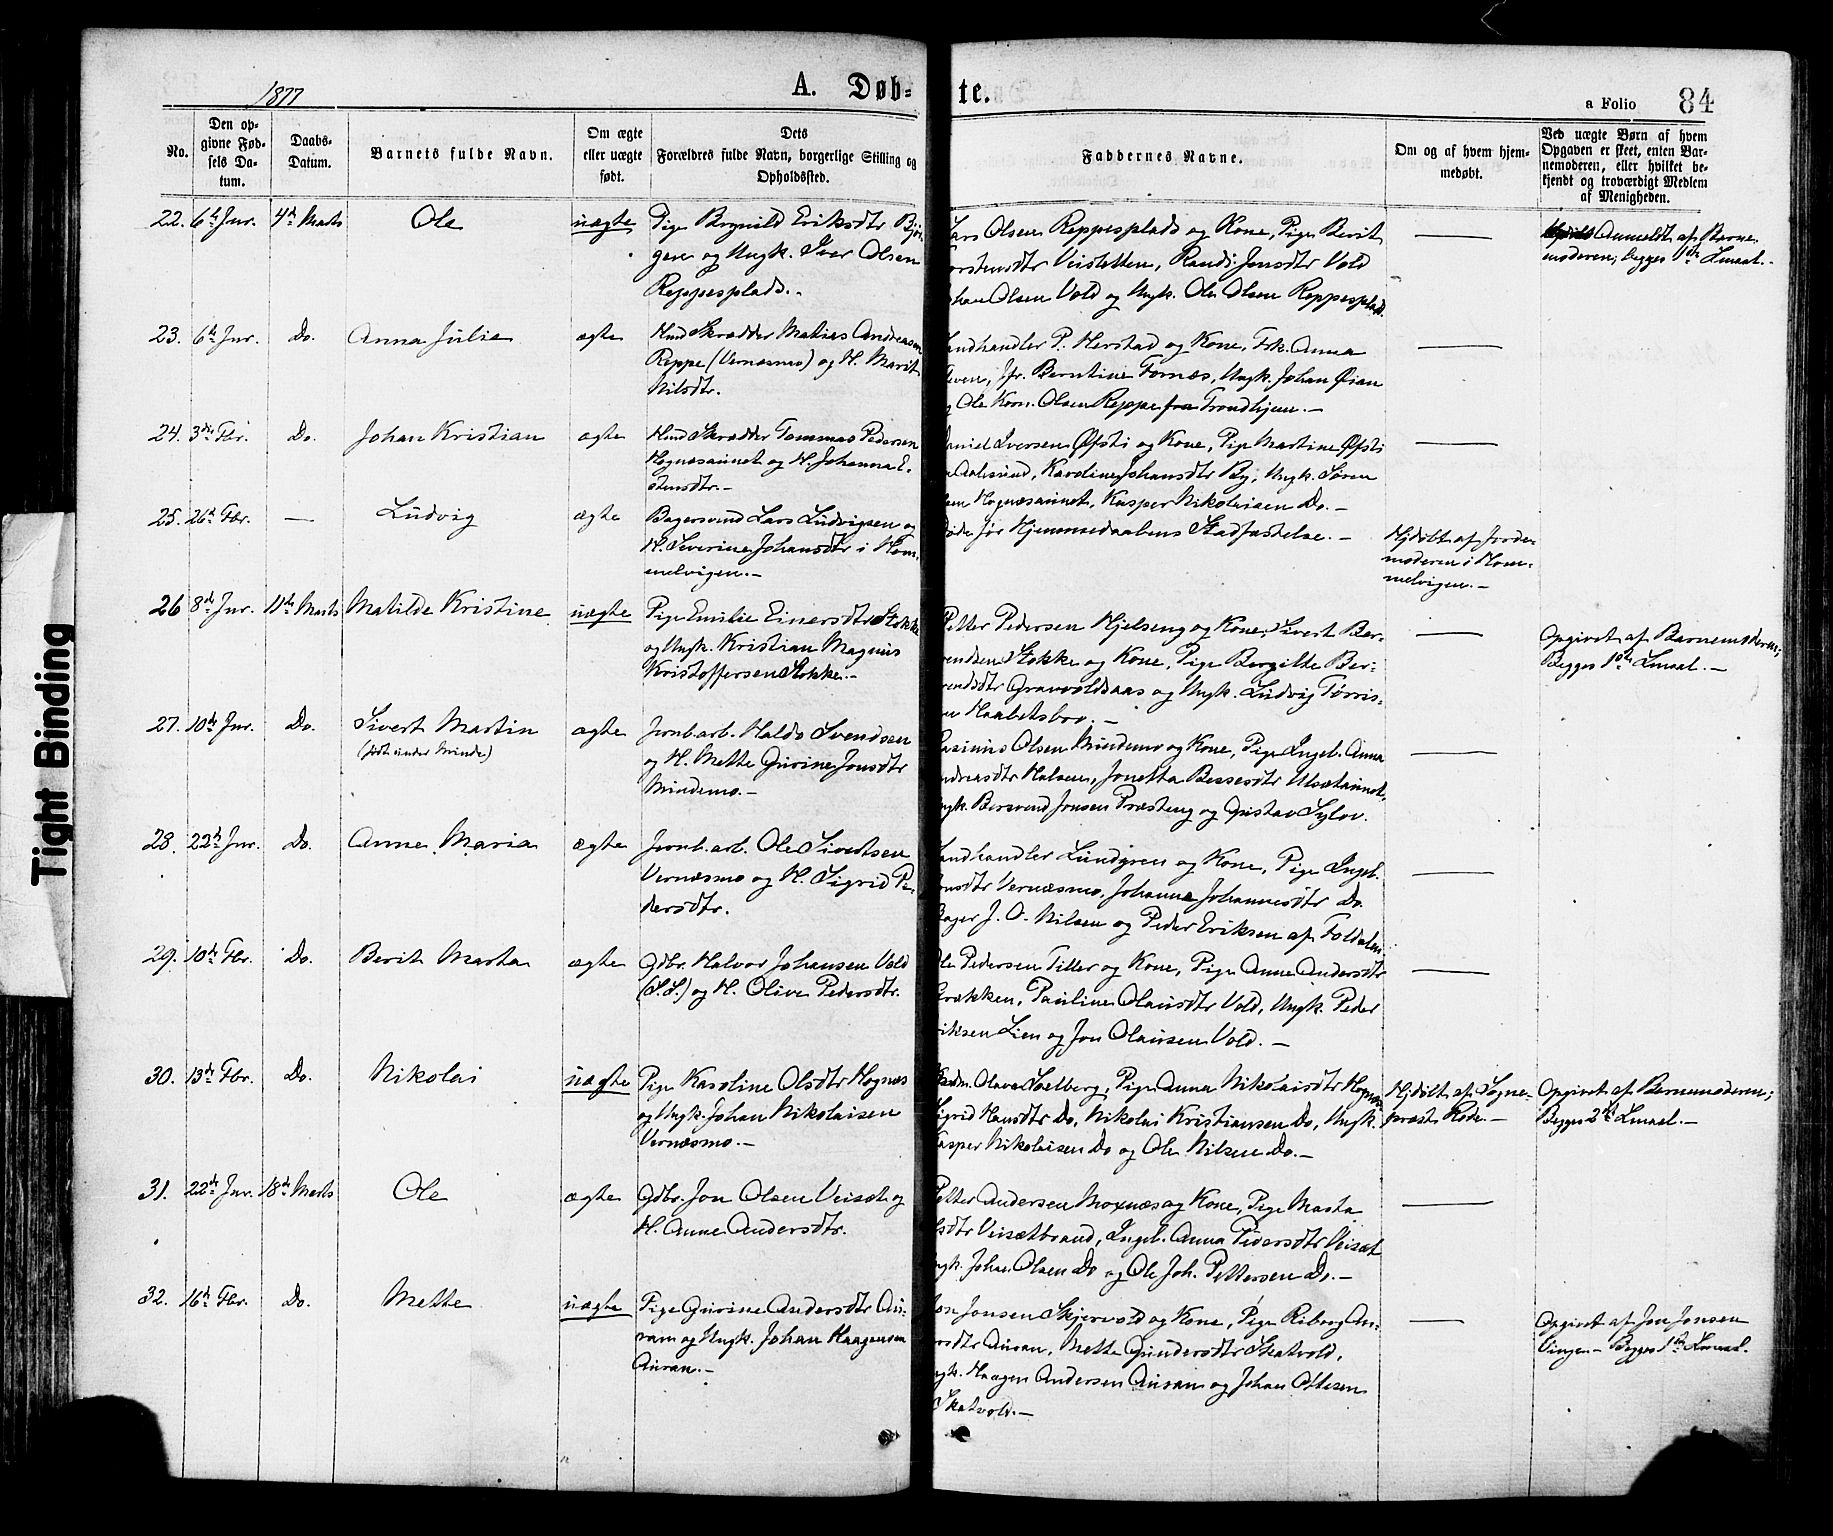 1877
A. Døb- te.
a Folio 84
No.
Den op-
givne Fød-
sels Da-
tum.
Daabs-
Datum.
Barnets fulde Navn.
Om ægte
eller uægte
født.
Dets
Forældres fulde Navn, borgerlige Stilling og
Opholdssted.
Faddernes Navne.
Om og af hvem hjem-
medøbt.
Ved uægte Børn af hvem
Opgaven er skeet, enten Bar-
nemoderen, eller hvilket be-
kjendt og troværdigt Medlem
af Menigheden.
22. 6te Jnr. 4de Marts Ole uægte Pige Brynild Eriksdtr Bjør-
gen og Ungk. Iver Olsen
Reppesplads.-
Lars Olsen Reppesplads og Kone, Pige Berit
Torstensdtr Veisletten, Randi Jonsdtr Vold
Johan Olsen Vold og Ungk. Ole Olsen Reppesplads.
Anmeldt af Barne-
moderen; begges 1ste Lmaal.-
23. 6te Jnr. Do. Anna Julie ægte Hmd Skrædder Mathias Andreasen
Reppe (Vernesmo) og H. Marit
Nilsdtr.
Landhandler P. Herstad og Kone, Frk. Anna
Jfr. Berntine Fornæs, Ungk. Johan Øian
og Ole Korn. Olsen Reppe fra Trondhjem.-
24. 3die Fbr. Do. Johan Kristian ægte Hmd Skrædder Tommas Pedersen
Hognæsaunet og H. Johanna E-
stensdtr.-
Daniel Iversen Øfsti og Kone, Pige Martine Øfsti
Aalesund, Karoline Johansdtr By, Ungk. Søren
Hognæsaunet, Kasper Nikolaisen Do.-
25. 26de Fbr. — Ludvig ægte Bagersvend Lars Ludvigsen og
H. Severine Johansdtr i Hom-
melvigen.-
Døde før Hjemmedaabens Stadfæstelse.-
Hjdøbt af Jorde-
moderen i Hom-
melvigen.-
26 8de Jnr. 11te Marts Matilde Kristine uægte Pige Emilie Einersdtr Stokke
og Ungk. Kristian Magnus
Kristoffersen Stokke.-
Petter Pedersen Hjelseng og Kone, Sivert Ber-
endsen Stokke og Kone, Pige Bergitte Ber-
endsdtr Gravvoldsaas og Ungk. Ludvig Torris-
sen Haabetsbov.-
Opgivet af Barnemoderen;
Begges 1ste Lmaal.-
27. 10de Jnr. Do. Sivert Martin ægte Jernb.arb. Haldo Svendsen
(født under Minde)
og H. Mette Gurine Jonsdtr
Mindemo.-
Rasinus Olsen Mindemo og Kone, Pige Ingeb. Anna
Andreasdtr Halsen, Jonetta Bessesdtr Ulsetaunet,
Ungk. Bersvend Jonsen Præsteng og Gustav Sylov.
28. 22de Jnr. Do. Anne Maria ægte Jernb.arb. Ole Sivertsen
Vernæsmo og H. Sigrid Pe-
dersdtr.
Landhandler Lundgren og Kone, Pige Ingeb.
Jonsdtr Vernæsmo, Johanna Johannesdtr Do.
Bager J. O. Nilsen og Peder Eriksen af Foldalen
29. 10de Fbr. Do. Berit Marta ægte Gdbr. Halvor Johansen Vold
(S.S.) og H. Olive Pedersdtr.
Ole Pedersen Tiller og Kone, Pige Anne Andersdtr
Brækken, Pauline Olausdtr Vold, Ungk. Peder
Eriksen Lien og Jon Olausen Vold.-
30. 13de Fbr. Do. Nikolai uægte Pige Karoline Olsdtr Hognæs
og Ungk. Johan Nikolaisen
Vernæsmo.-
Olava Solberg, Pige Anna Nikolaisdtr Hognæs
Sigrid Hansdtr Do, Nikolai Kristiansen Do, Ungk.
Kasper Nikolaisen Do og Ole Nilsen Do.-
Hjdøbt af Sogne-
præst Rode.-
Opgivet af Barnemoderen;
Begges 2det Lmaal.-
31. 22de Jnr. 18de Marts Ole ægte Gdbr. Jon Olsen Veiset og
H. Anne Andersdtr.
Petter Andersen Moxnæs og Kone, Pige Marta
Olsdtr Veisetbrand, Ingeb. Anna Pedersdtr Veiset
Ungk. Johan Olsen Do og Ole Joh. Pettersen Do.-
32. 16de Fbr. Do. Mette uægte Pige Gurine Andersdtr Au-
ran og Ungk. Johan Haagensen
Auran.-
Jon Jonsen Skjervold og Kone, Pige Riborg An-
dersdtr Auran, Mette Gundersdtr Skatvold,
Ungk. Haagen Andersen Auran og Johan Ottesen
Skatvold.-
Opgivet af Jon Jonsen
Vinge.- Begges 1ste Lmaal.
Tight Binding